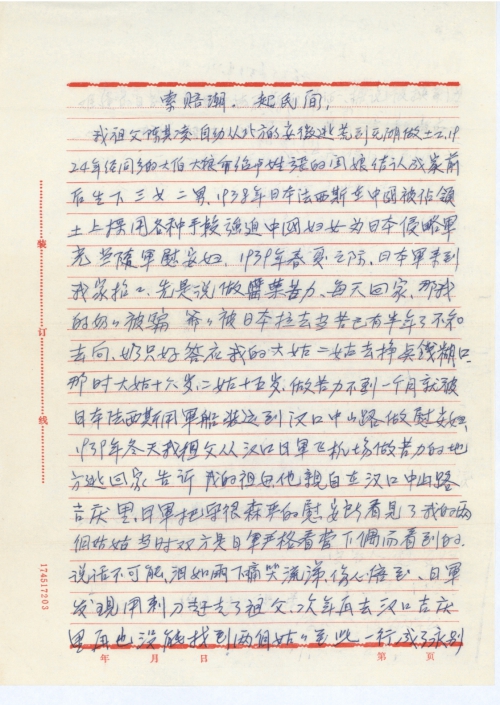 索赔潮.起民间,
我祖父陈其凌自幼从北方的安徽逃荒到芜湖做土工,19
24年经同乡的大伯大娘介给中姓张的闺娘结认成家前
后生下三女二男,1938年日本法西斯在中國被佔領
土上採用各种手段強迫中网妇女为日本侵略軍
充当隨軍慰安妇,1939年春夏之际,日本軍来到
我家招工,先是说做醫葯苦力、每天回家,那我
的奶"被騙 爷"被日本拉去当苦已有半年了不知
去向,奶只好答应我的大姑二姑去掙点钱糊口
那时大姑十六岁,二姑十五岁,做苦力不到一个月就被
日本法西斯用軍船装运到汉口中山路做慰安妇,
1939年冬天我祖父从汉口日軍飞机场做苦力的地
方逃回家告訴我的祖母他親自在汉口中山路
吉庆里,日軍把守很森严的慰安所看見了我的两
個姑姑当时双方是日軍严格看管下偶而看到的.
说话不可能,泪如雨下痛哭流涕,伤心悟至、日軍
发現用刺刀赶走了祖父,次年再去汉口吉庆
里再也没能找到两個姑"至此一行成了永别
装订线
174517203
年 月 日 第 页